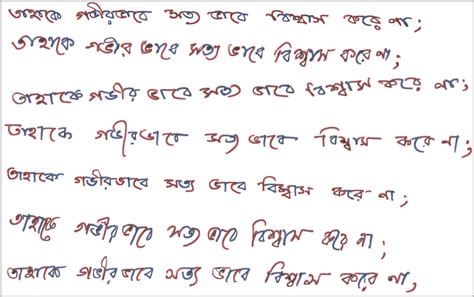 তাহাকে গভীরভাবে সত্য ভাবে বিশ্বাস করে না;
তাহাকে গভীর ভাবে সত্য ভাবে বিশ্বাস করে না;
তাহাকে গভীর ভাবে সত্য ভাবে বিশ্বাস করে না;
তাহাকে গভীরভাবে সত্য ভাবে বিশ্বাস করে না;
তাহাকে গভীরভাবে সত্য ভাবে বিশ্বাস করে না;
তাহাকে গভীরভাবে সত্য ভাবে বিশ্বাস করে না;
তাহাকে গভীরভাবে সত্য ভাবে বিশ্বাস করে না;